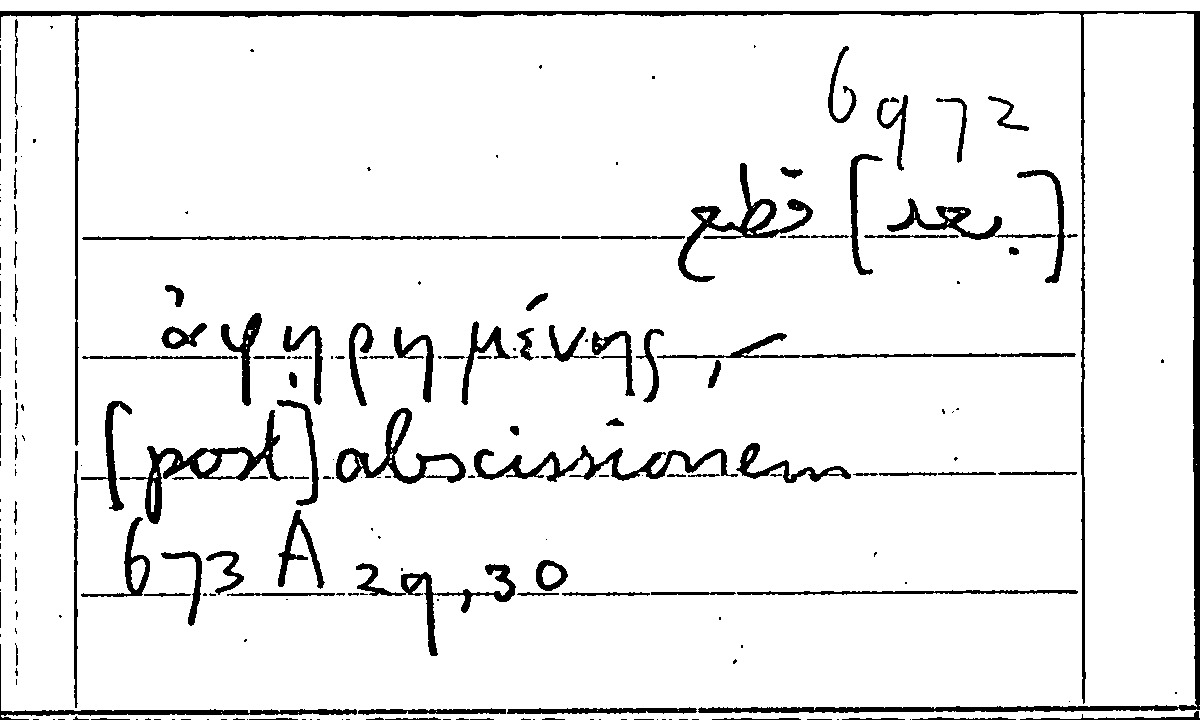 6972
[بعد] قطع
ἀφῃρημένης, –
[post] abscissionem
673 A 29, 30